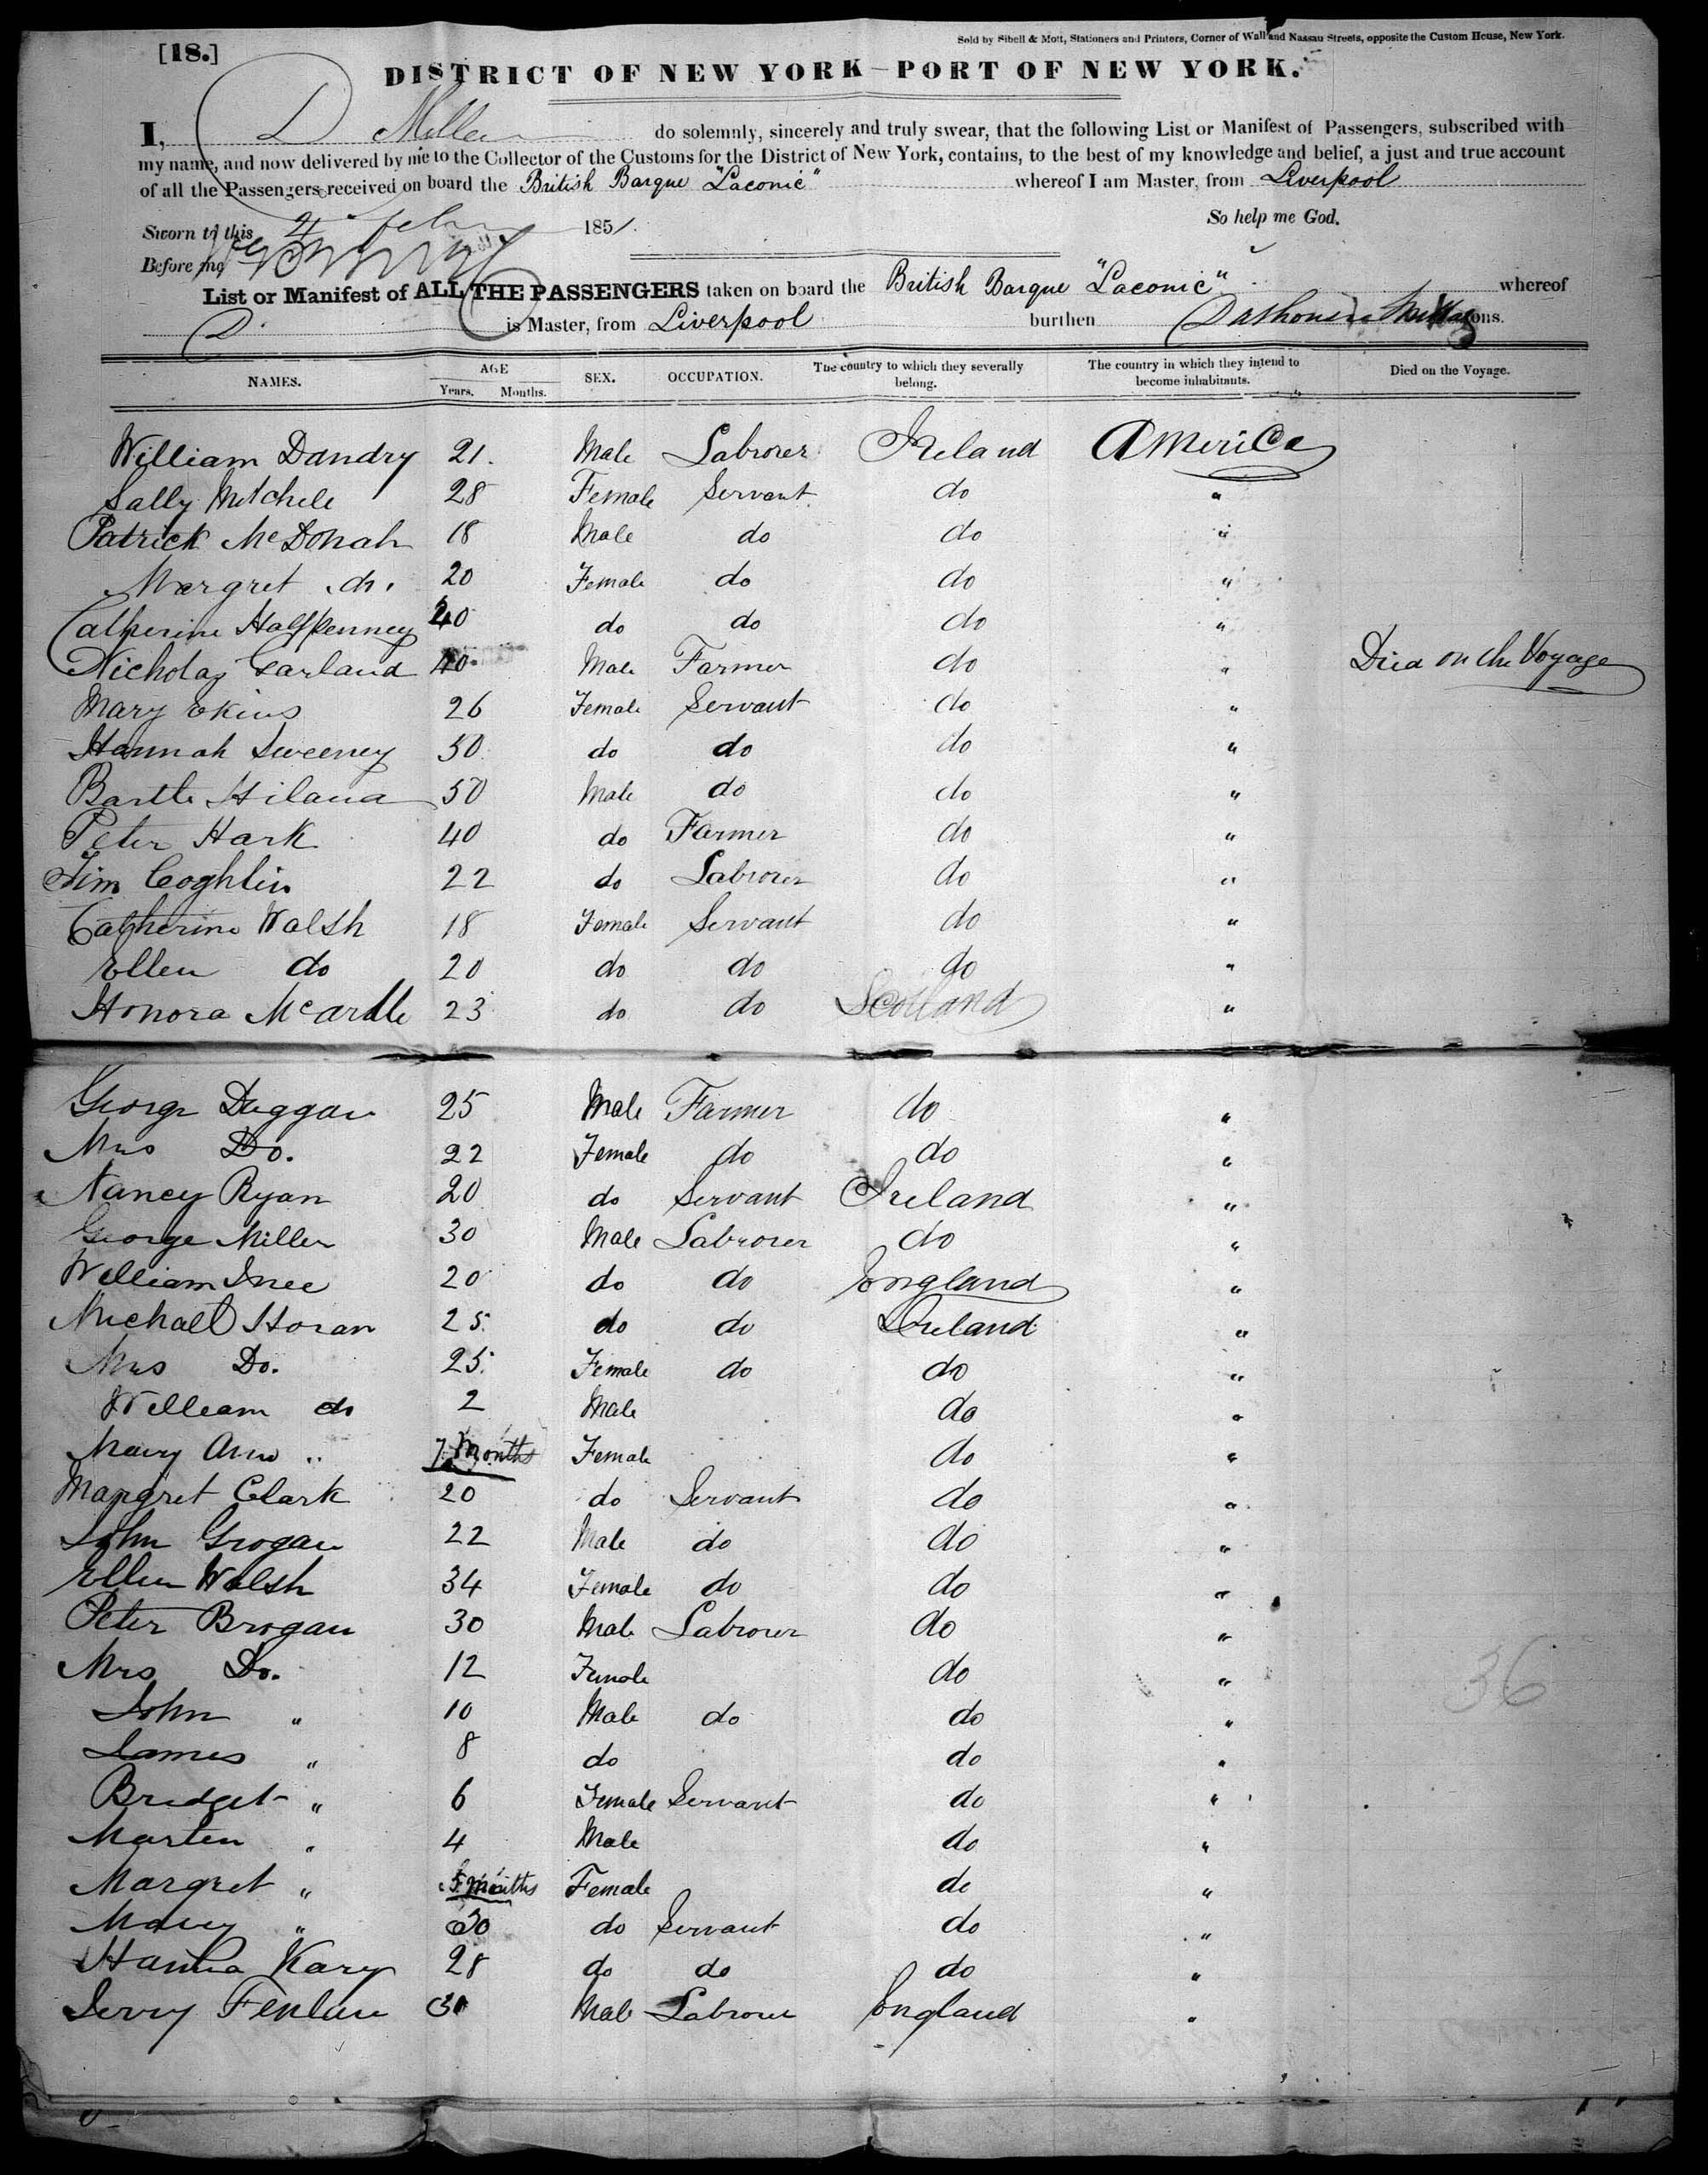 [18.]
Sold by Sibell & Mott, Stationers and Printers, Corner of Wall and Nassau Streets, opposite the Custom House, New York.
DISTRICT OF NEW YORK—PORT OF NEW YORK.
I, D Miller do solemnly, sincerely and truly swear, that the following List or Manifest of Passengers, subscribed with
my name, and now delivered by me to the Collector of the Customs for the District of New York, contains, to the best of my knowledge and belief, a just and true account
of all the Passengers received on board the British Barque "Laconic" whereof I am Master, from Liverpool
So help me God.
Sworn to this 4 feby 1851.
Before me
List or Manifest of ALL THE PASSENGERS taken on board the British Barque "Laconic" whereof
D. is Master, from Liverpool burthen tons.
NAMES. AGE Years. Months. SEX. OCCUPATION. The country to which they severally belong. The country in which they intend to become inhabitants. Died on the Voyage.
William Dandry 21. Male Labrorer Ireland America
Sally Mitchele 28 Female Servant do "
Patrick McDonah 18 Male do do "
Margret do. 20 Female do do "
Catherine Halfpenney 40 do do do "
Nicholas Garland 40 Male Farmer do " Died on the Voyage
Mary Ekins 26 Female Servant do "
Hannah Sweeney 50 do do do "
Bartle Hilana 50 Male do do "
Peter Hark 40 do Farmer do "
Tim Coghlin 22 do Labrorer do "
Catherine Walsh 18 Female Servant do "
Ellen do 20 do do do "
Honora McArdle 23 do do Scotland "
George Duggan 25 Male Farmer do "
Mrs Do. 22 Female do do "
Nancy Ryan 20 do Servant Ireland "
George Miller 30 Male Labrorer do "
William Inee 20 do do England "
Michael Horan 25 do do Ireland "
Mrs Do. 25 Female do do "
William do 2 Male do "
Mary Ann " 7 Months Female do "
Margret Clark 20 do Servant do "
John Grogan 22 Male do do "
Ellen Walsh 34 Female do do "
Peter Brogan 30 Male Labrorer do "
Mrs Do. 12 Female do "
John " 10 Male do do "
James " 8 do do "
Bridget " 6 Female Servant do "
Marten " 4 Male do "
Margret " 5 Months Female do "
Mary " 30 do Servant do "
Hanna Kary 28 do do do "
Jerry Fenlan 30 Male Labrorer England "
36